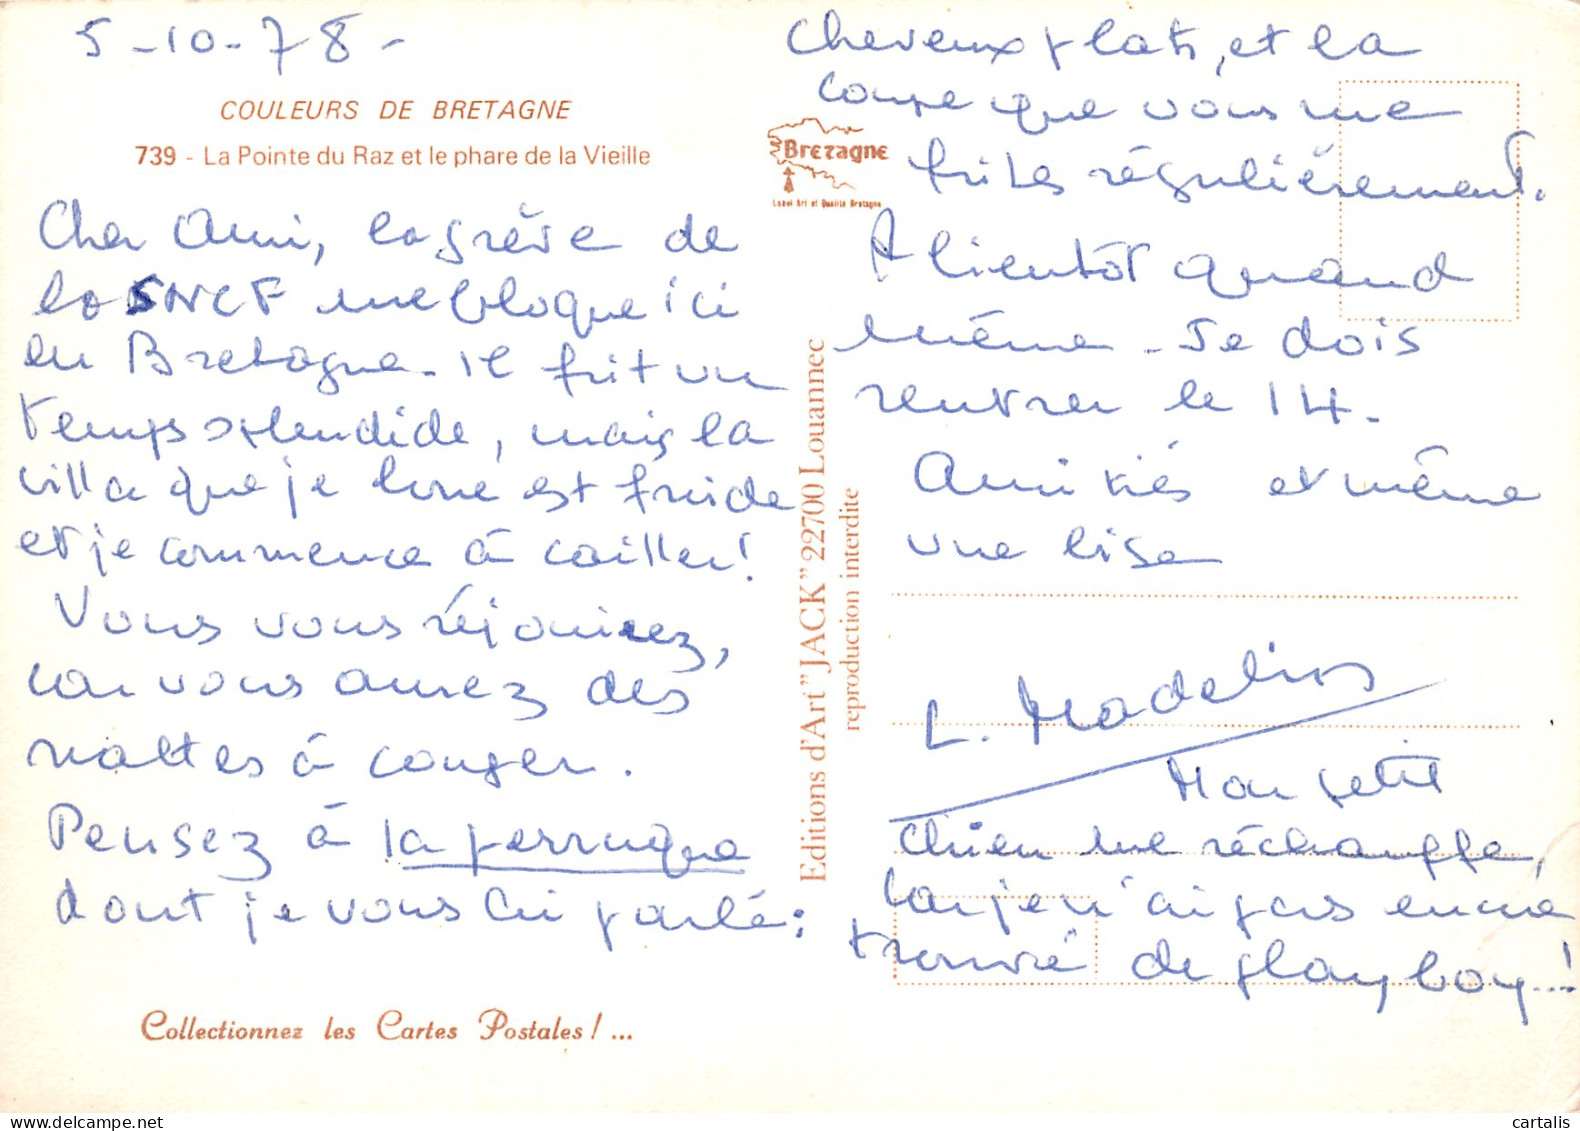 5-10-78-
COULEURS DE BRETAGNE
739 - La Pointe du Raz et le phare de la Vieille
Cher Ami, la grève de
la SNCF me bloque ici
en Bretagne - il fait un
temps splendide, mais la
villa que je loue est froide
et je commence à cailler !
Vous vous réjouissez,
car vous aurez des
nattes à couper.
Pensez à la perruque
dont je vous ai parlé :
Collectionnez les Cartes Postales ! ...
Editions d'Art "JACK" 22700 Louannec
reproduction interdite
Bretagne
Label Art et Qualité Bretagne
Cheveux plats, et la
coupe que vous me
faites régulièrement.
A bientôt quand
même - Je dois
rentrer le 14 -
Amitiés et même
une bise
L.
Mon petit
chien me réchauffe,
car je n'ai pas encore
trouvé de play boy...!